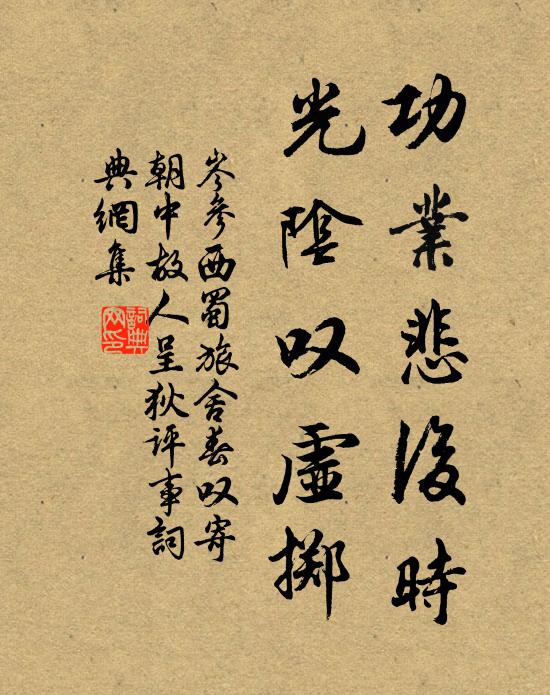 功業悲後時
光陰叹虛擲
岑參西蜀旅舍春叹寄
朝中故人呈狄評事詞
典網集
詞典网印